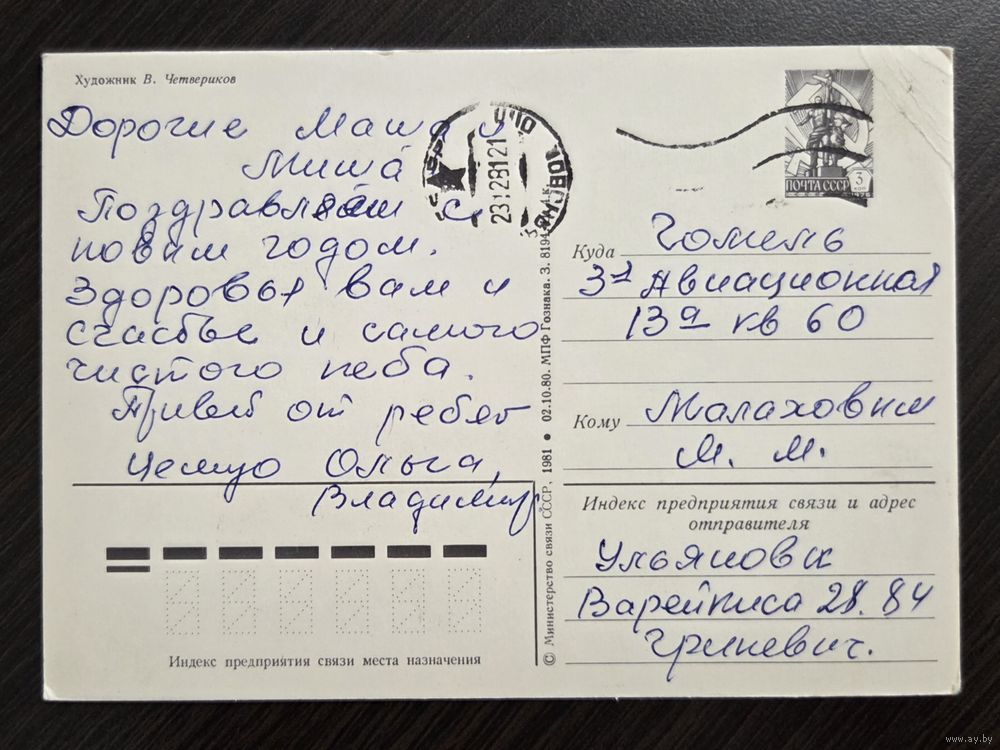 Художник В. Четвериков
Дорогие Маша и
Миша
Поздравляем с
новим годом.
Здоровья вам и
счастье и самого
чистого неба.
Привет от ребят
Целую Ольга,
Владимир
Индекс предприятия связи места назначения
© Министерство связи СССР, 1981 • 02.10.80. МПФ Гознака. З. 8194
23 12 81 21
ПОЧТА СССР 3 КОП
Куда Гомель
3я Авиационная
13а кв 60
Кому Малаховым
М. М.
Индекс предприятия связи и адрес
отправителя
Ульяновск
Варейкиса 28. 84
Гриневич.
www.ay.by